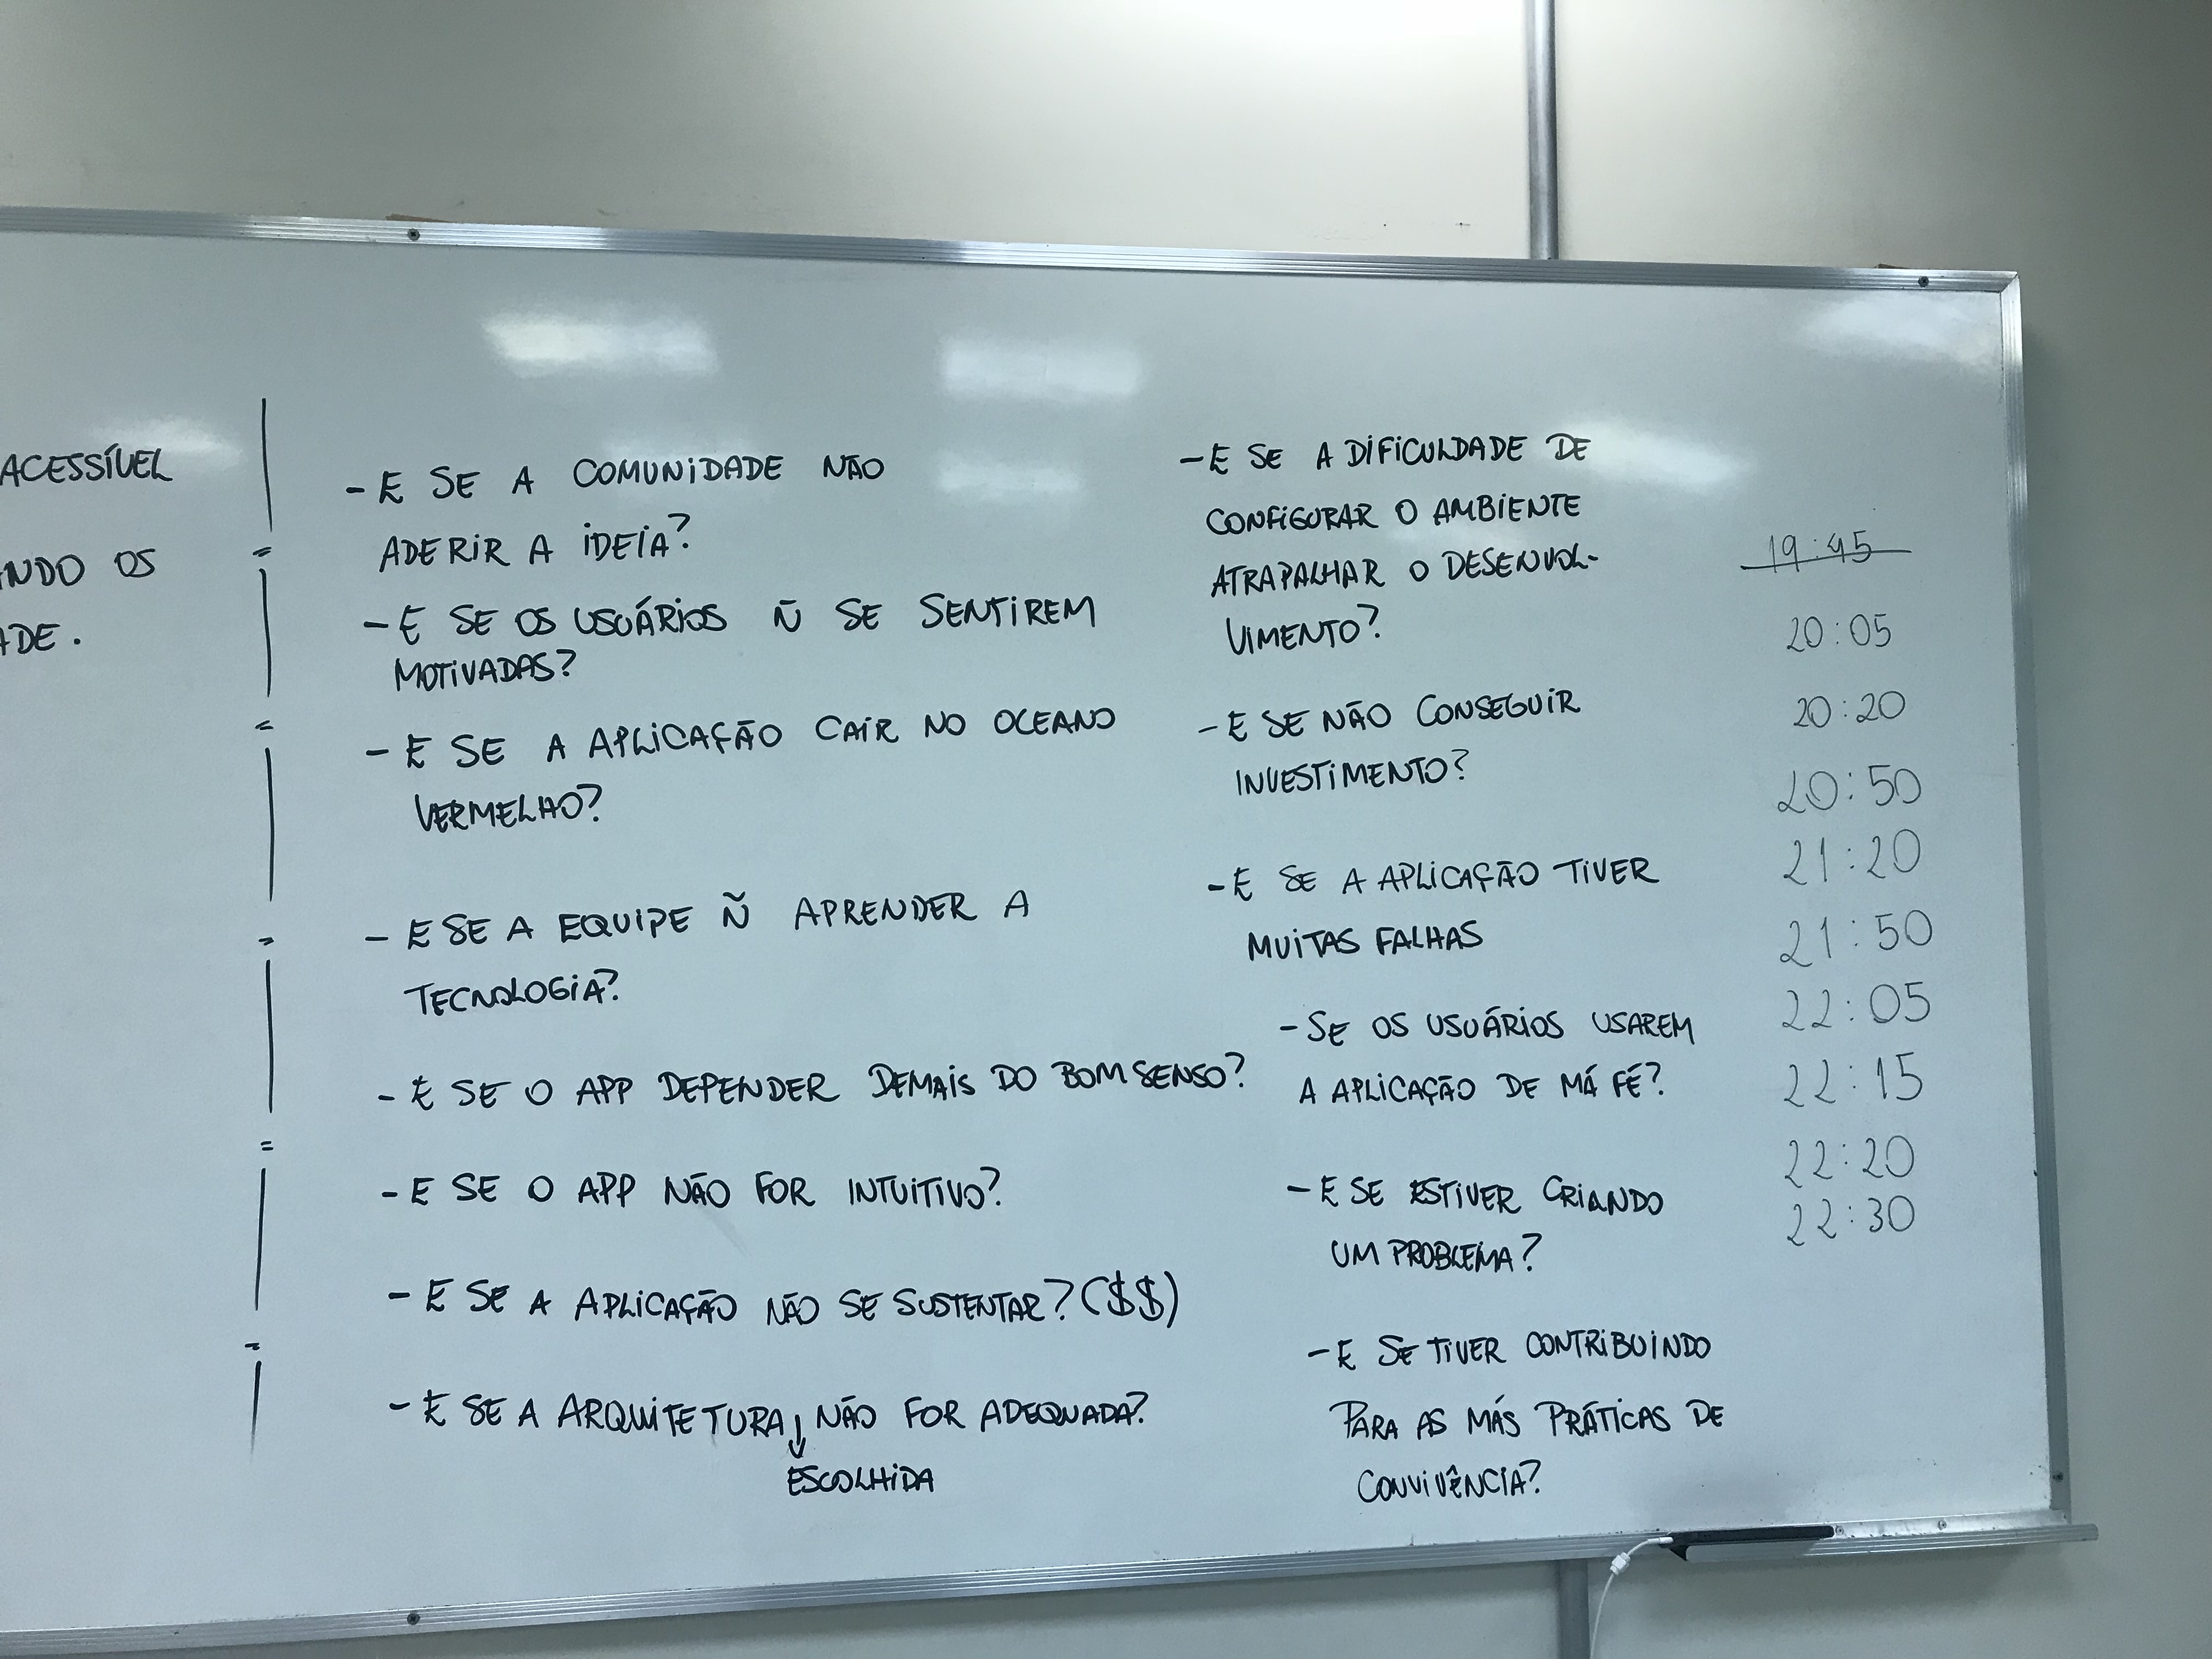 ACESSÍVEL
NDO OS
ADE.
- E SE A COMUNIDADE NÃO
ADERIR A IDEIA?
- E SE OS USUÁRIOS Ñ SE SENTIREM
MOTIVADAS?
- E SE A APLICAÇÃO CAIR NO OCEANO
VERMELHO?
- E SE A EQUIPE Ñ APRENDER A
TECNOLOGIA?
- E SE O APP DEPENDER DEMAIS DO BOM SENSO?
- E SE O APP NÃO FOR INTUITIVO?
- E SE A APLICAÇÃO NÃO SE SUSTENTAR? ($$)
- E SE A ARQUITETURA NÃO FOR ADEQUADA?
ESCOLHIDA
- E SE A DIFICULDADE DE
CONFIGURAR O AMBIENTE
ATRAPALHAR O DESENVOL-
VIMENTO?
- E SE NÃO CONSEGUIR
INVESTIMENTO?
- E SE A APLICAÇÃO TIVER
MUITAS FALHAS
- SE OS USUÁRIOS USAREM
A APLICAÇÃO DE MÁ FÉ?
- E SE ESTIVER CRIANDO
UM PROBLEMA?
- E SE TIVER CONTRIBUINDO
PARA AS MÁS PRÁTICAS DE
CONVIVÊNCIA?
19:45
20:05
20:20
20:50
21:20
21:50
22:05
22:15
22:20
22:30